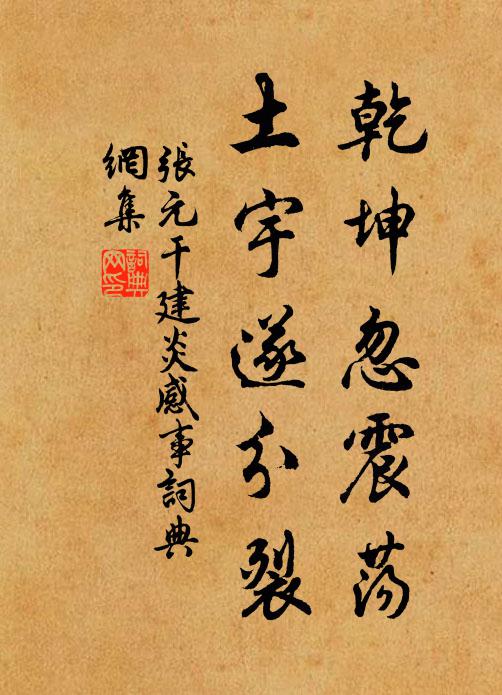 乾坤忽震荡
土宇遂分裂
張元干建炎感事詞典
網集
詞典網印